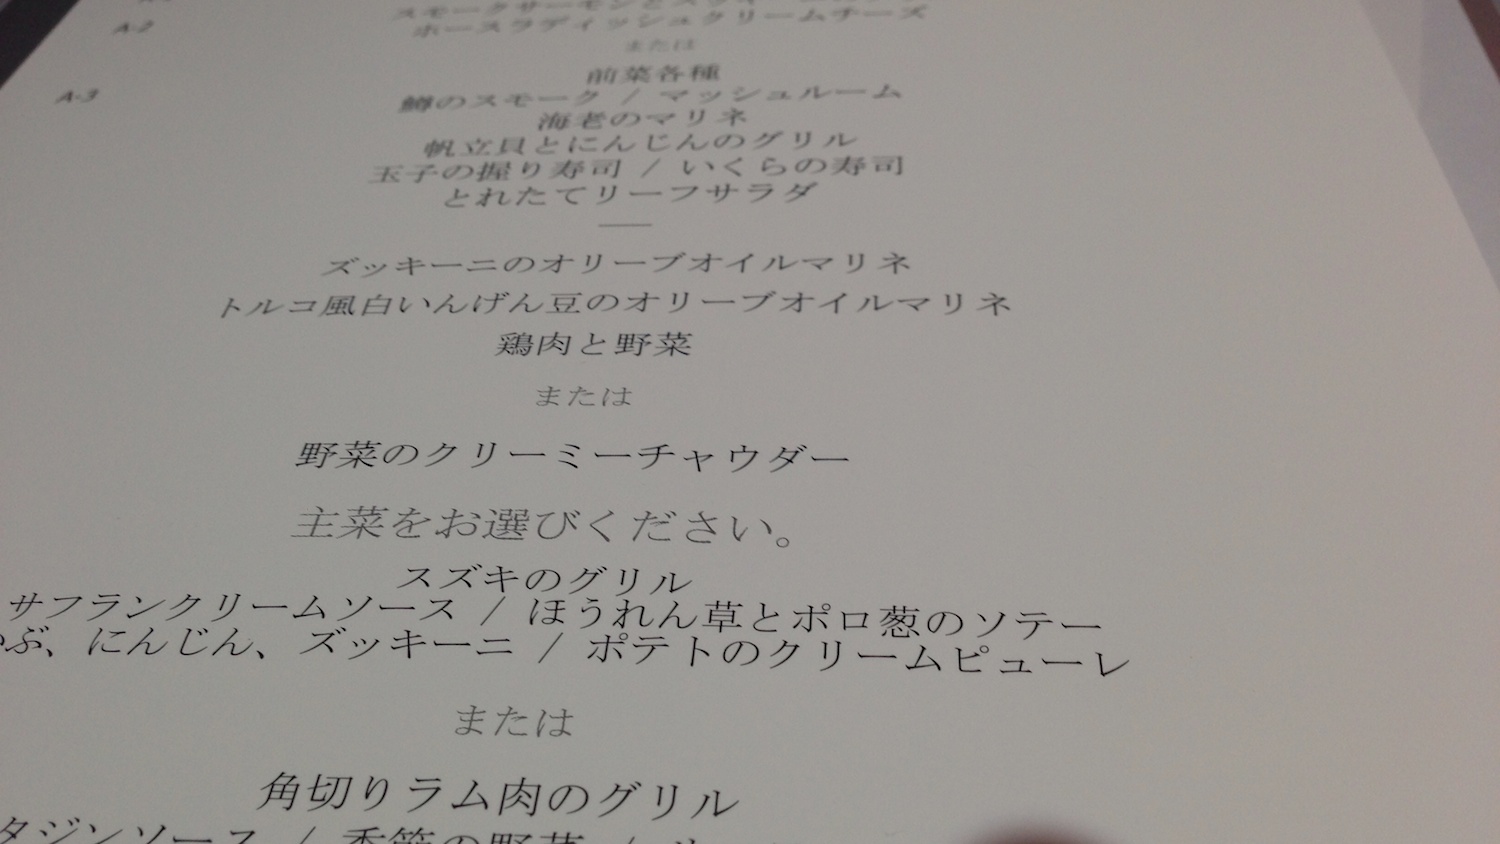 A-2
ホースラディッシュクリームチーズ
または
A-3
前菜各種
鱒のスモーク / マッシュルーム
海老のマリネ
帆立貝とにんじんのグリル
玉子の握り寿司 / いくらの寿司
とれたてリーフサラダ
ズッキーニのオリーブオイルマリネ
トルコ風白いんげん豆のオリーブオイルマリネ
鶏肉と野菜
または
野菜のクリーミーチャウダー
主菜をお選びください。
スズキのグリル
サフランクリームソース / ほうれん草とポロ葱のソテー
ぶ、にんじん、ズッキーニ / ポテトのクリームピューレ
または
角切りラム肉のグリル
タジンソース / 季節の野菜 /